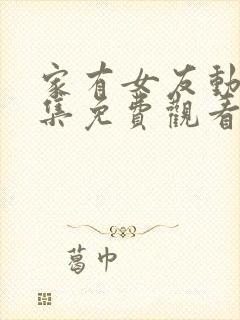 家有女友動
集免費觀看
葛巾